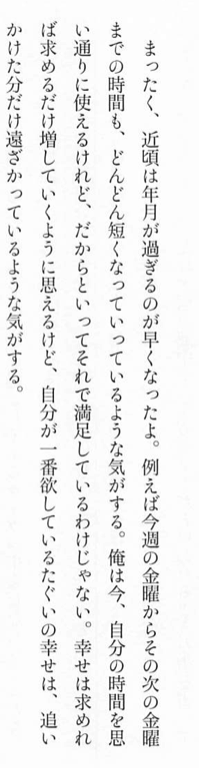 まったく、近頃は年月が過ぎるのが早くなったよ。例えば今週の金曜からその次の金曜
までの時間も、どんどん短くなっていっているような気がする。俺は今、自分の時間を思
い通りに使えるけれど、だからといってそれで満足しているわけじゃない。幸せは求めれ
ば求めるだけ増していくように思えるけど、自分が一番欲しているたぐいの幸せは、追い
かけた分だけ遠ざかっているような気がする。